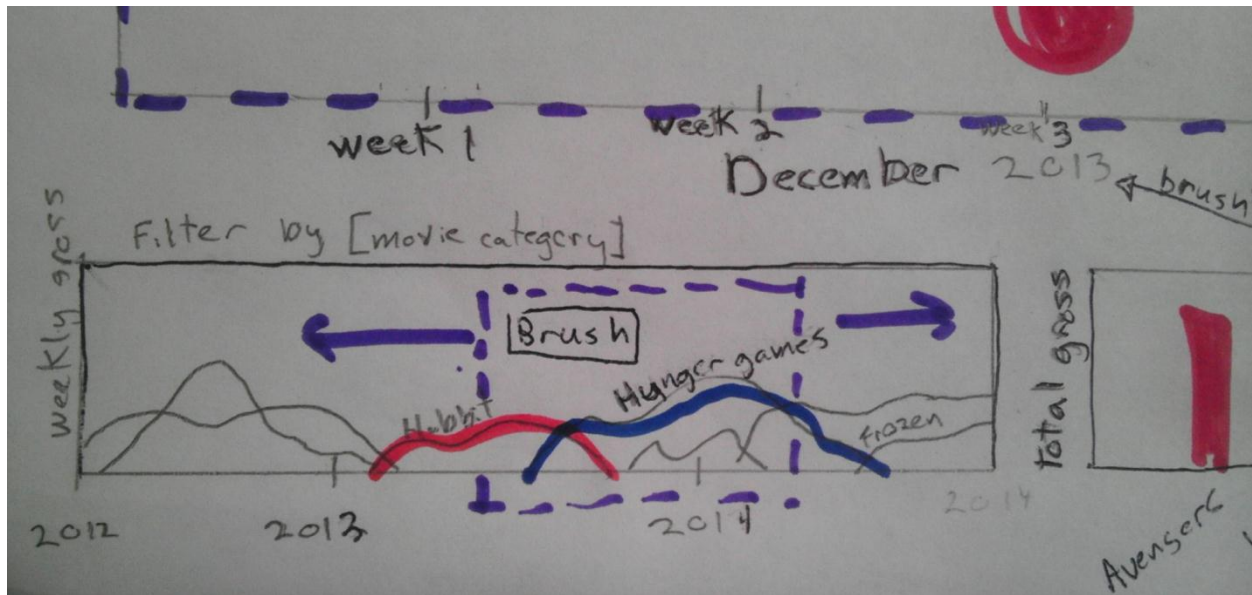 week 1
week 2
week 3
December 2013
brush
weekly gross
Filter by [movie category]
Brush
Hunger games
Hobbit
Frozen
2012
2013
2014
2014
total gross
Avengers